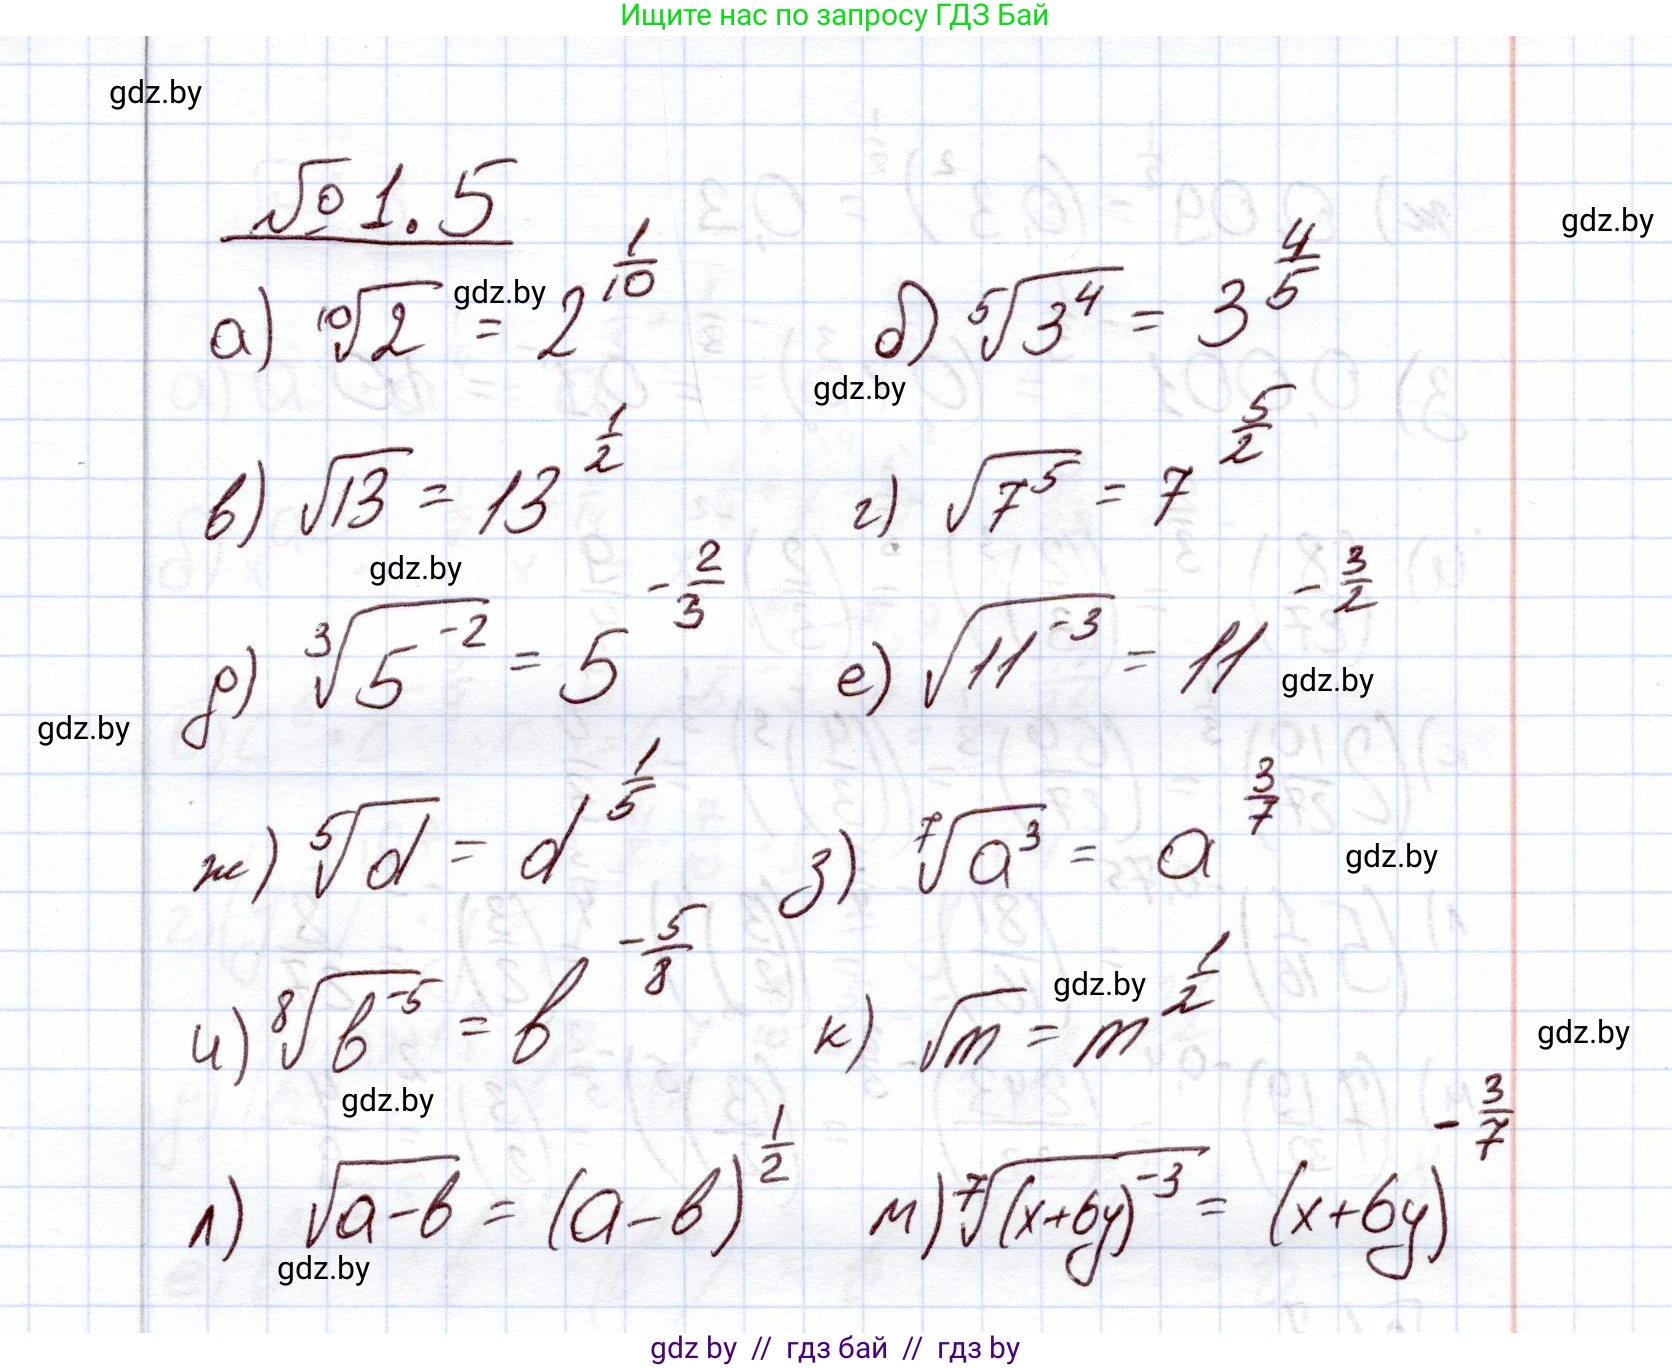 Ищите нас по запросу ГДЗ Бай
gdz.by
№1.5
gdz.by
а) ¹⁰√2 = 2^(1/10) gdz.by б) ⁵√(3^4) = 3^(4/5)
gdz.by
в) √13 = 13^(1/2) г) √(7^5) = 7^(5/2)
gdz.by
д) ³√(5^(-2)) = 5^(-2/3) е) √(11^(-3)) = 11^(-3/2)
gdz.by
gdz.by
ж) ⁵√d = d^(1/5) з) ⁷√(a^3) = a^(3/7)
gdz.by
и) ⁸√(b^(-5)) = b^(-5/8) к) √m = m^(1/2)
gdz.by
gdz.by
gdz.by
л) √(a-b) = (a-b)^(1/2) м) ⁷√((x+6y)^(-3)) = (x+6y)^(-3/7)
gdz.by
gdz by // гдз бай // гдз by